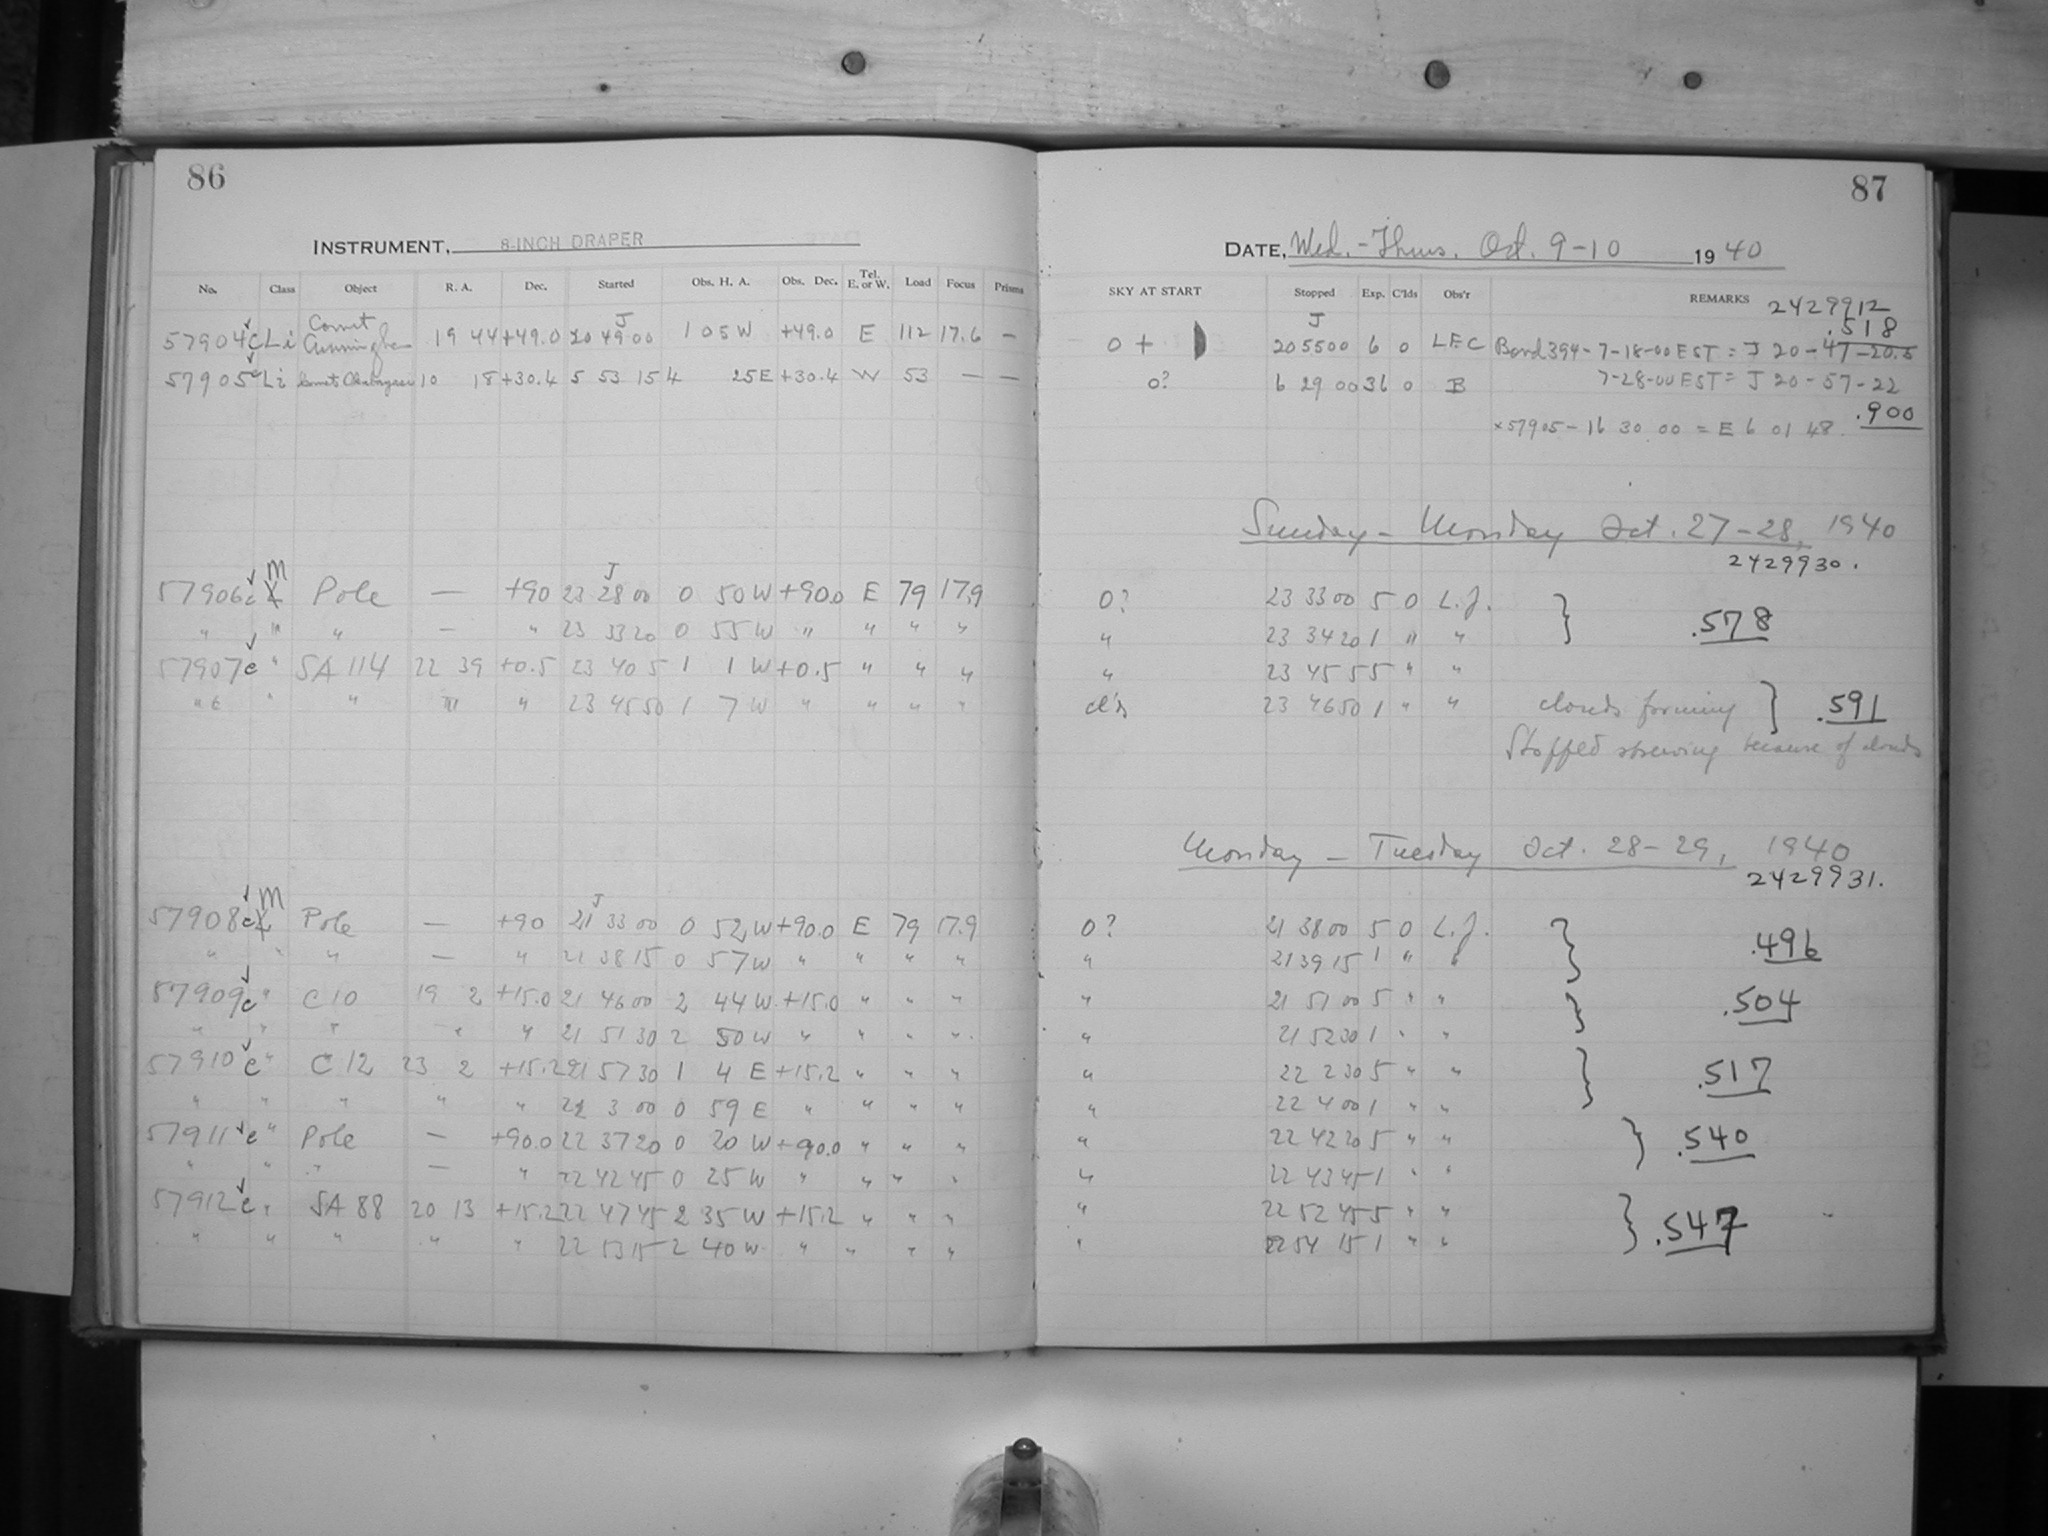 86
INSTRUMENT, 8-INCH DRAPER
No. Class Object R. A. Dec. Started Obs. H. A. Obs. Dec. Tel. E. or W. Load Focus Prisms
J
57904c Li Comet Cunningham 19 44 +49.0 20 49 00 1 05 W +49.0 E 112 17.6 —
57905c Li Comet 10 18 +30.4 5 53 15 4 25 E +30.4 W 53 — —
M J
57906c Pole — +90 23 28 00 0 50 W +90.0 E 79 17.9
" " " — " 23 33 20 0 55 W " " " "
57907c " SA 114 22 39 +0.5 23 40 5 1 1 W +0.5 " " "
" " " " " 23 45 50 1 7 W " " " "
M J
57908c Pole — +90 21 33 00 0 52 W +90.0 E 79 17.9
" " " — " 21 38 15 0 57 W " " " "
57909c " C 10 19 2 +15.0 21 46 00 2 44 W +15.0 " " "
" " " " " 21 51 30 2 50 W " " " "
57910c " C 12 23 2 +15.2 21 57 30 1 4 E +15.2 " " "
" " " " " 22 3 00 0 59 E " " " "
57911c " Pole — +90.0 22 37 20 0 20 W +90.0 " " "
" " " — " 22 42 45 0 25 W " " " "
57912c " SA 88 20 13 +15.2 22 47 45 2 35 W +15.2 " " "
" " " " " 22 53 15 2 40 W " " " "
87
DATE, Wed.-Thurs. Oct. 9-10 1940
SKY AT START Stopped Exp. C'lds Obs'r REMARKS
2429912
J .518
0 + 20 55 00 6 0 LFC Bond 394-7-18-00 EST = J 20-47-20.5
0? 6 29 00 36 0 B 7-28-00 EST = J 20-57-22
.900
x 57905 - 16 30 00 = E 6 01 48
Sunday - Monday Oct. 27-28, 1940
2429930.
0? 23 33 00 5 0 L.J. } .578
" 23 34 20 1 " "
" 23 45 5 5 " "
cl'ds 23 46 50 1 " " clouds forming } .591
Stopped because of clouds
Monday - Tuesday Oct. 28-29, 1940
2429931.
0? 21 38 00 5 0 L.J. } .496
" 21 39 15 1 " "
" 21 51 00 5 " " } .504
" 21 52 30 1 " "
" 22 2 30 5 " " } .517
" 22 4 00 1 " "
" 22 42 20 5 " " } .540
" 22 43 45 1 " "
" 22 52 45 5 " " } .547
" 22 54 15 1 " "